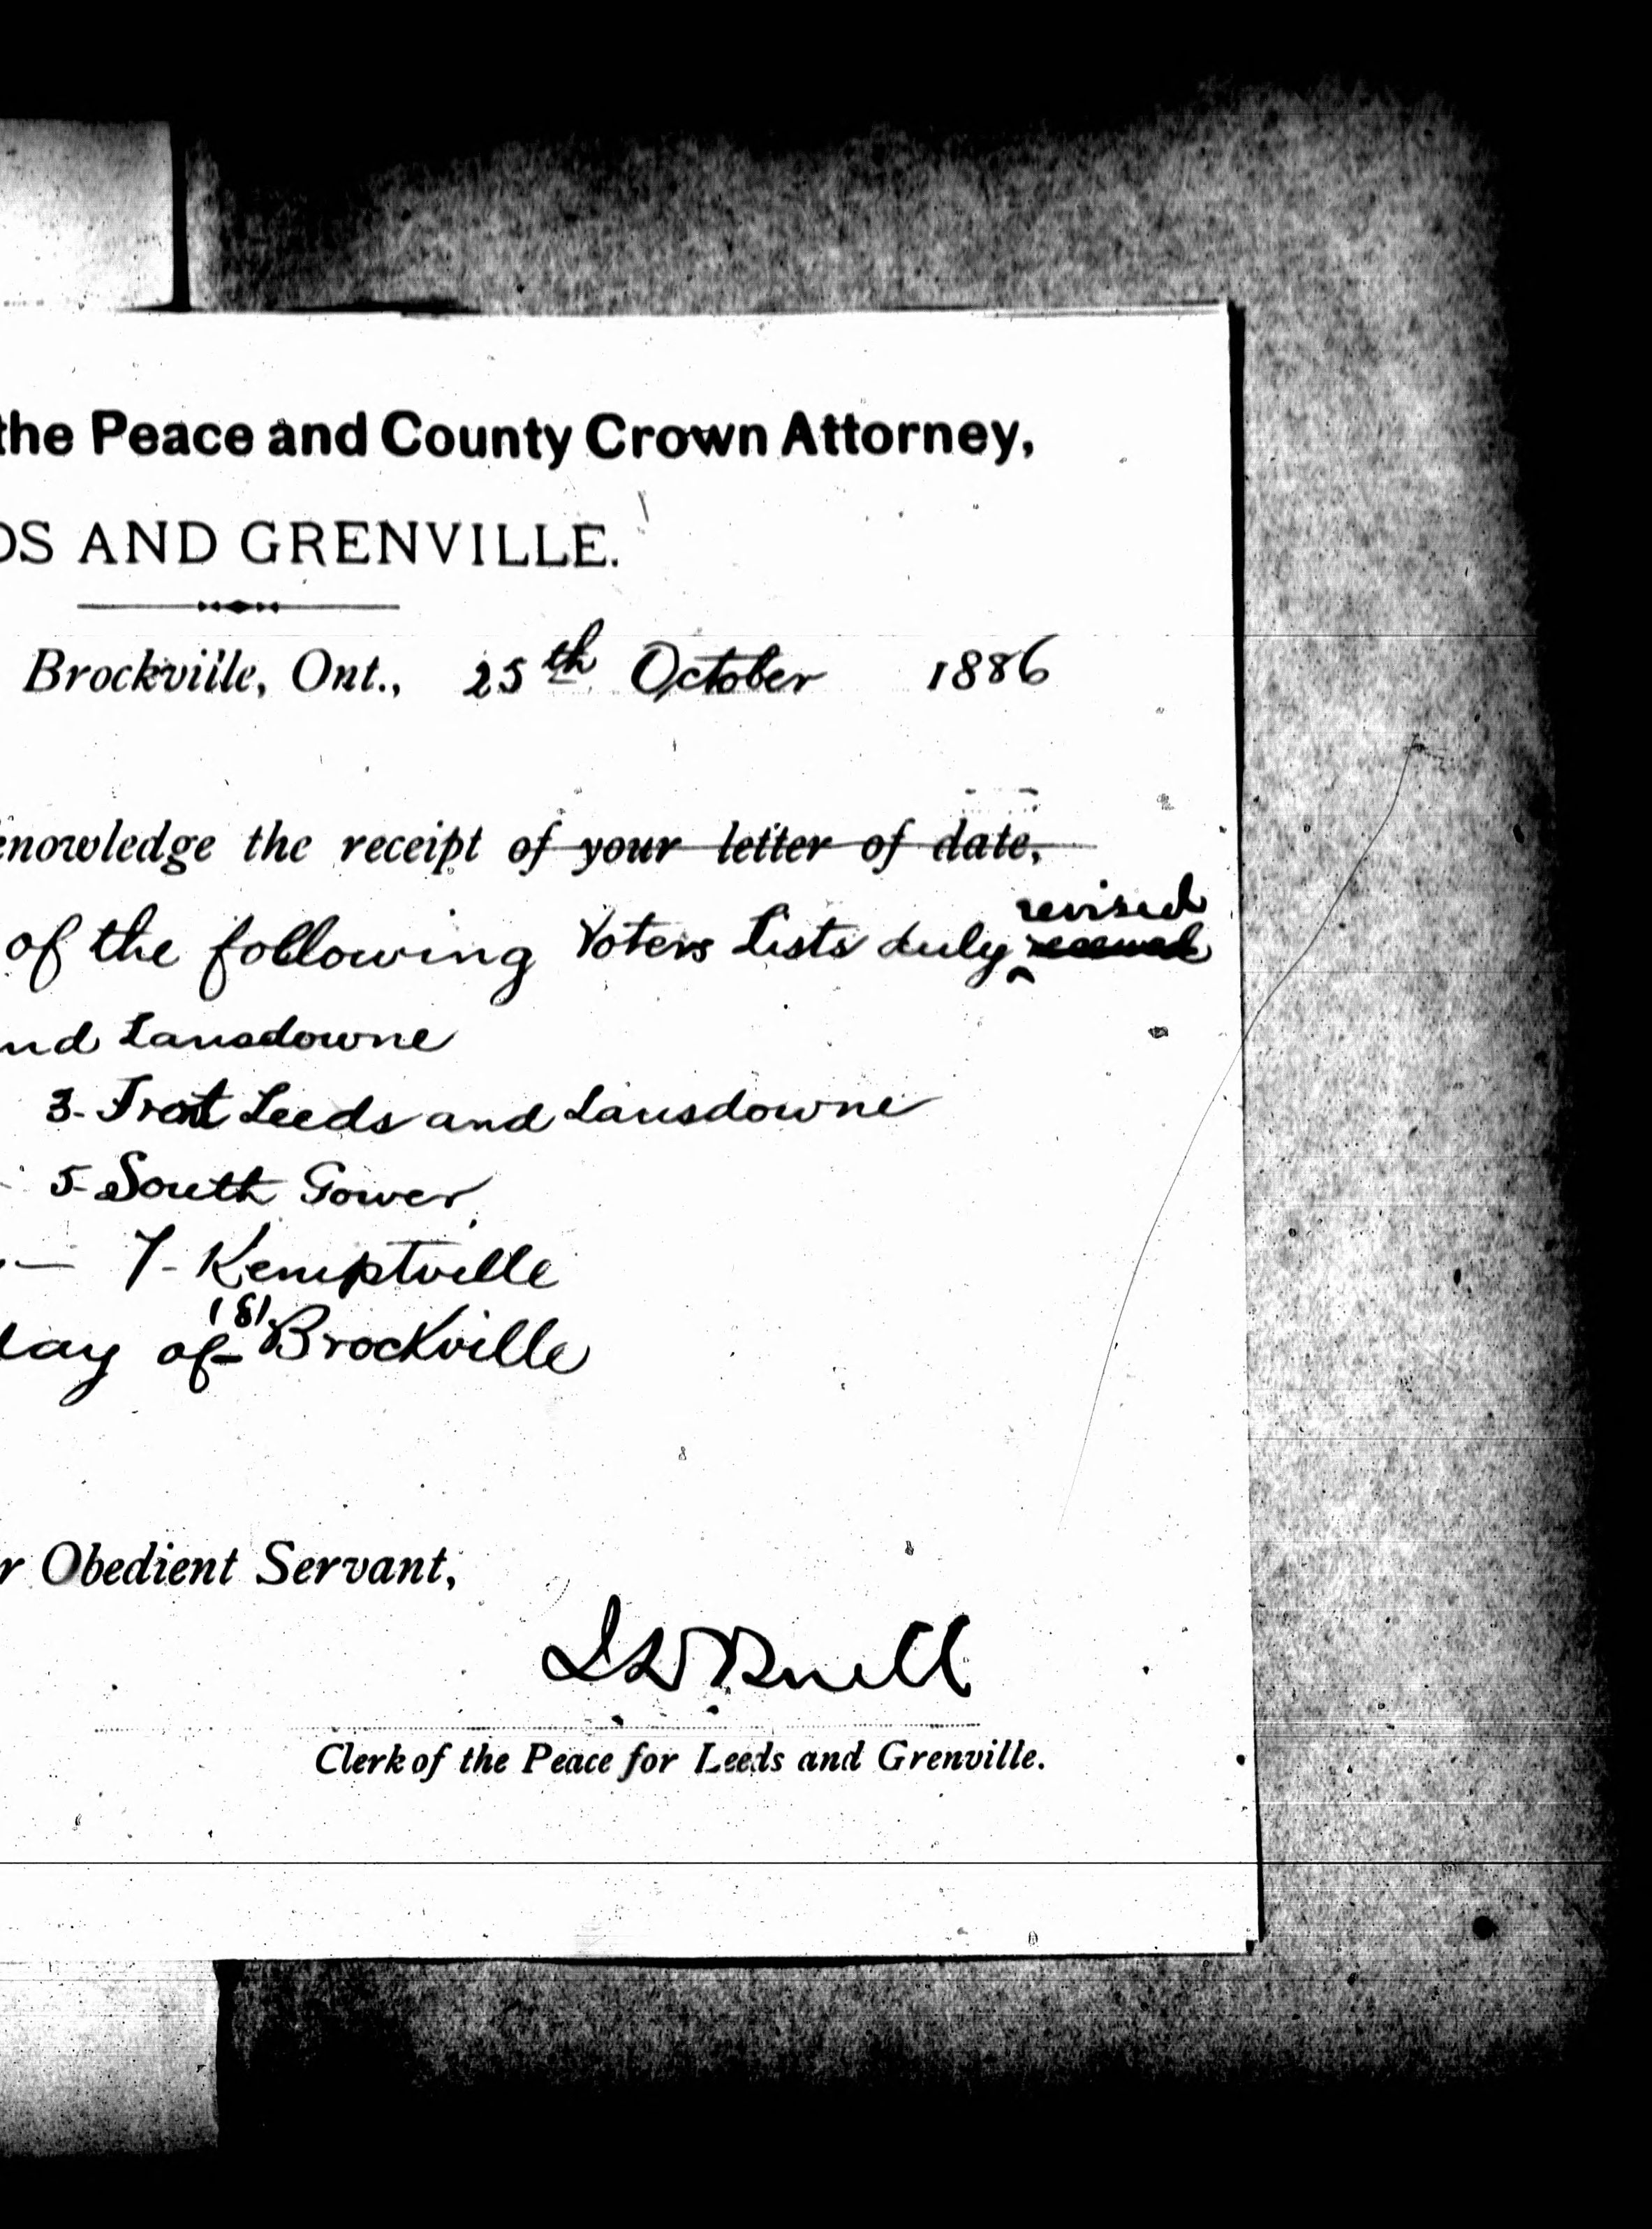 the Peace and County Crown Attorney,
DS AND GRENVILLE.
Brockville, Ont., 25th October 1886
knowledge the receipt of your letter of date,
revised
of the following Voters Lists duly
nd Lansdowne
3- Front Leeds and Lansdowne
5- South Gower,
7- Kemptville
(8)
day of Brockville
r Obedient Servant,
Clerk of the Peace for Leeds and Grenville.